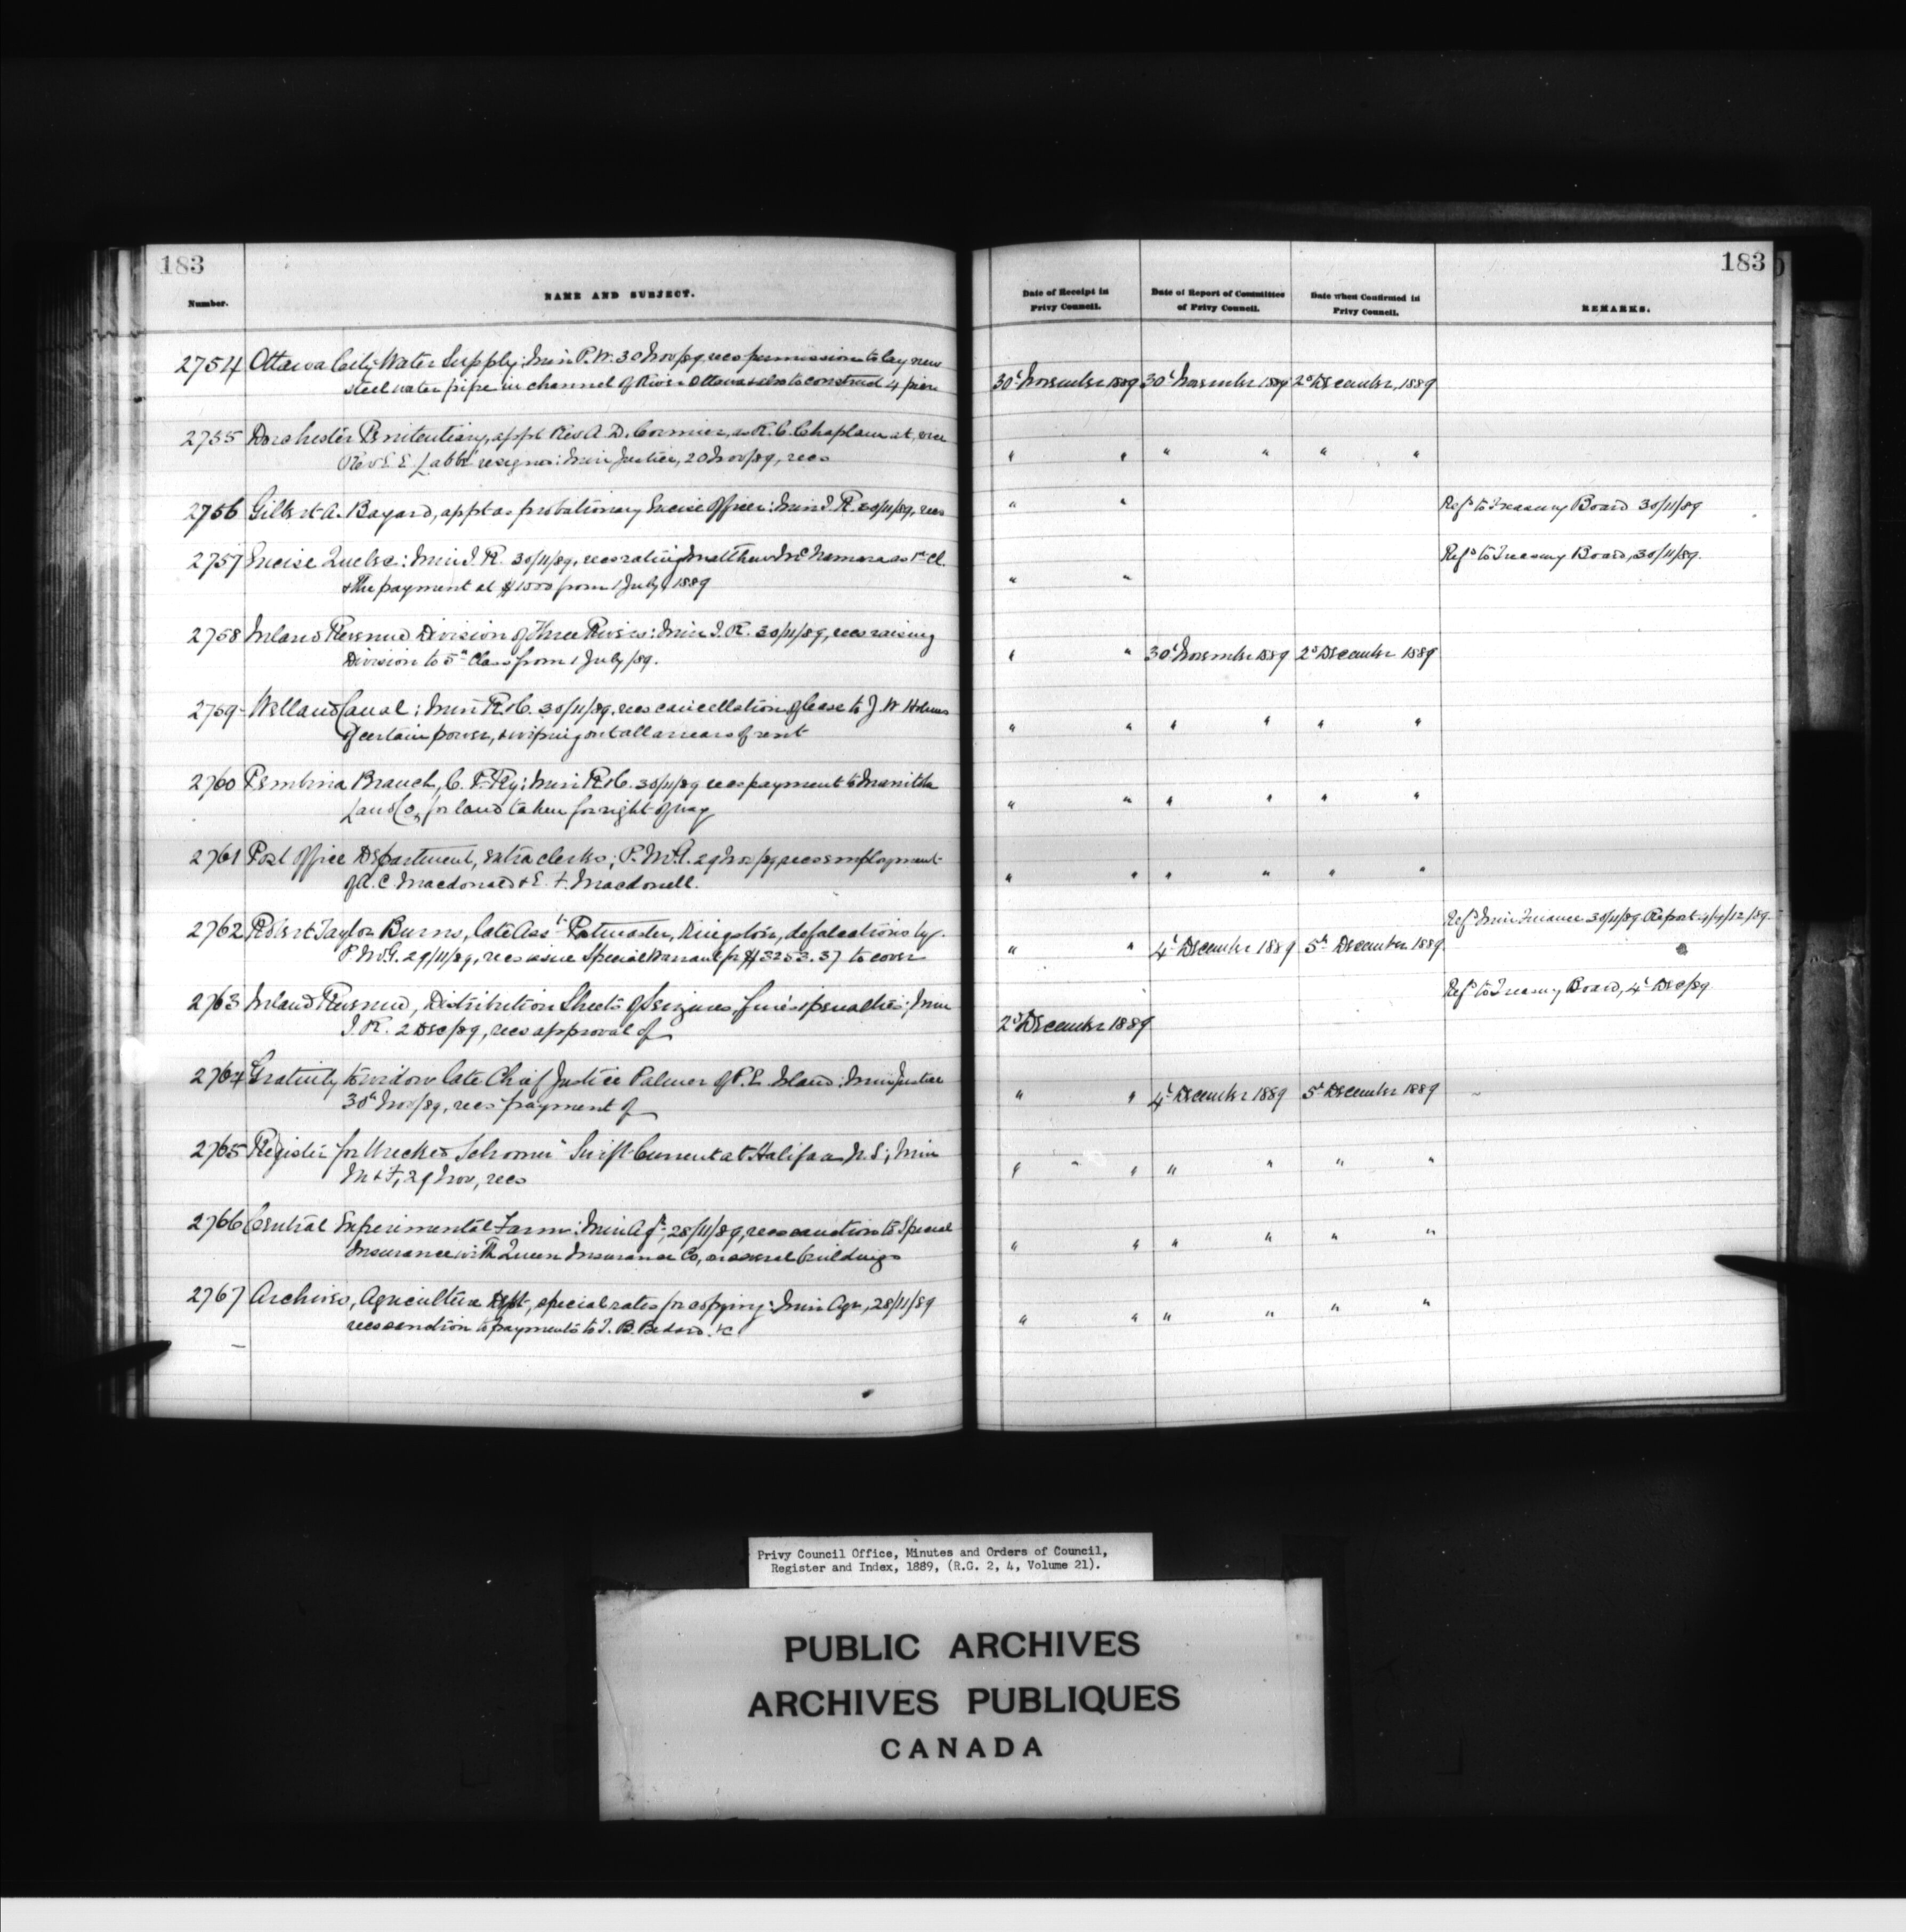 183
183
Number.
NAME AND SUBJECT.
Date of Receipt in
Privy Council.
Date of Report of Committee
of Privy Council.
Date when Confirmed in
Privy Council.
REMARKS.
2754 Ottawa City Water Supply; Min P.W. 30 Nov/89, recs permission to lay new
steel water pipe in channel of River Ottawa & also to construct 4 piers
30th November 1889 30th November 1889 2d December, 1889
2755 Dorchester Penitentiary, appt Rev A. D. Cormier, as R.C. Chaplain at, vice
Rev E. E. Labbé resigned: Min Justice, 20 Nov/89, recs
" " " " " "
2756 Gilbert A. Bayard, appt as probationary Excise Officer: Min I.R. 30/11/89, recs
" " Refd to Treasury Board 30/11/89
2757 Excise Quebec: Min I.R. 30/11/89, recs rating Matthew McNamara as 1st Cl.
& the payment at $1500 from 1 July, 1889
" " Refd to Treasury Board, 30/11/89.
2758 Inland Revenue Division of Three Rivers: Min I.R. 30/11/89, recs raising
Division to 5th Class from 1 July/89.
" " 30th November 1889 2d December 1889
2759 Welland Canal; Min R&C. 30/11/89, recs cancellation of lease to J. W Holmes
of certain power, & wiping out all arrears of rent
" " " " " "
2760 Pembina Branch, C. P. Ry; Min R&C. 30/11/89 recs payment to Manitoba
Land Co, for land taken for right of way
" " " " " "
2761 Post Office Department, extra clerks; P.M.G. 29 Nov/89, recs employment
of A. C. Macdonald & E. F. Macdonell.
" " " " " "
2762 Robert Taylor Burns, late Asst Postmaster, Kingston, defalcations by.
P.M.G. 29/11/89, recs issue Special Warrant for $3253.37 to cover
" " 4th December 1889 5th December 1889 Refd Min Finance 30/11/89. Report 4/12/89.
2763 Inland Revenue, Distribution Sheets of Seizures, fines & penalties; Min
I.R. 2 Dec/89, recs approval of
2d December 1889 Refd to Treasury Board, 4th Dec/89
2764 Gratuity to widow late Chief Justice Palmer of P.E. Island: Min Justice
30th Nov/89, recs payment of
" " 4th December 1889 5th December 1889
2765 Register for Wrecked Schooner "Swift Current at Halifax N.S; Min
M & F, 29 Nov, recs
" " " " " " "
2766 Central Experimental Farm: Min Agr, 28/11/89, recs sanction to Special
Insurance with Queen Insurance Co, on several buildings
" " " " " "
2767 Archives, Agriculture Dept, special rates for copying: Min Agr, 28/11/89
recs sanction to payments to T. B. Bedard &c
" " " " " "
Privy Council Office, Minutes and Orders of Council,
Register and Index, 1889, (R.G. 2, 4, Volume 21).
PUBLIC ARCHIVES
ARCHIVES PUBLIQUES
CANADA